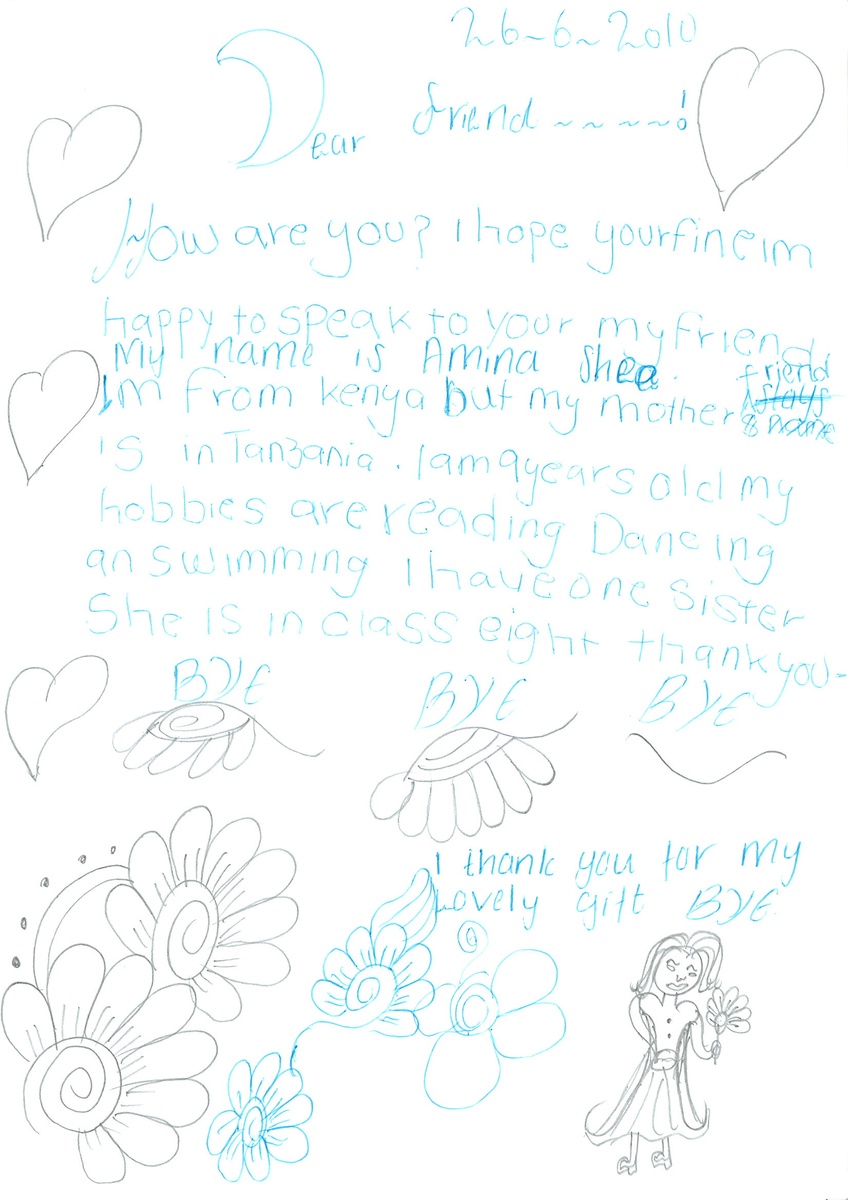 26-6-2010
Dear friend ~~~~!
How are you? I hope yourfine im
happy to speak to your my friend
My name is Amina Shee. friend
Im from kenya but my mother stays
is in Tanzania. I am 9 years old my
hobbies are reading Dancing
an swimming I have one sister
She is in class eight thank you-
BYE BYE BYE
I thank you for my
Lovely gift BYE